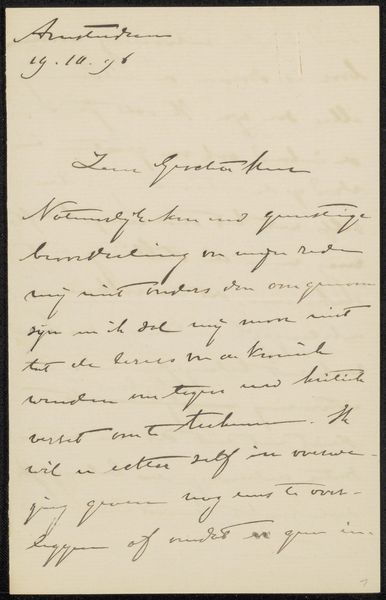 Amsterdam
19.10.96
Zeer Geachte Heer
Natuurlijk kan uwe gunstige
beoordeeling van mijn rede
mij niet anders dan aangenaam
zijn en ik zal mij maar niet
tot de lezers van de Kroniek
wenden om tegen uwe kritiek
verzet aan te teekenen. Ik
wil u echter zelf in overwe-
ging geven nog eens te over-
leggen of omdat er geen in-